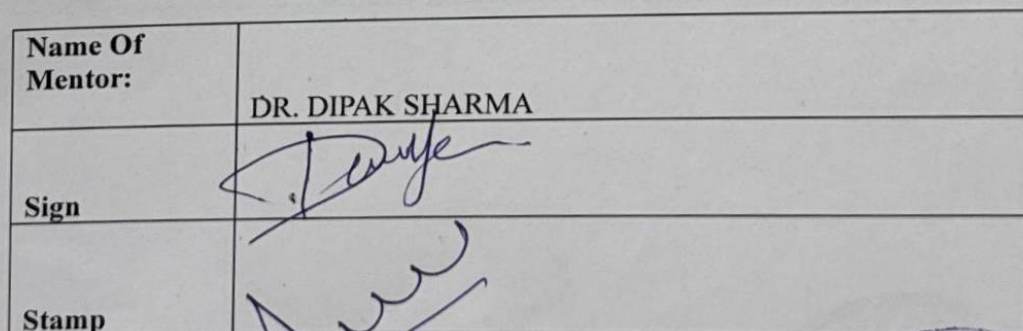 Name Of
Mentor:
DR. DIPAK SHARMA
Sign
Stamp